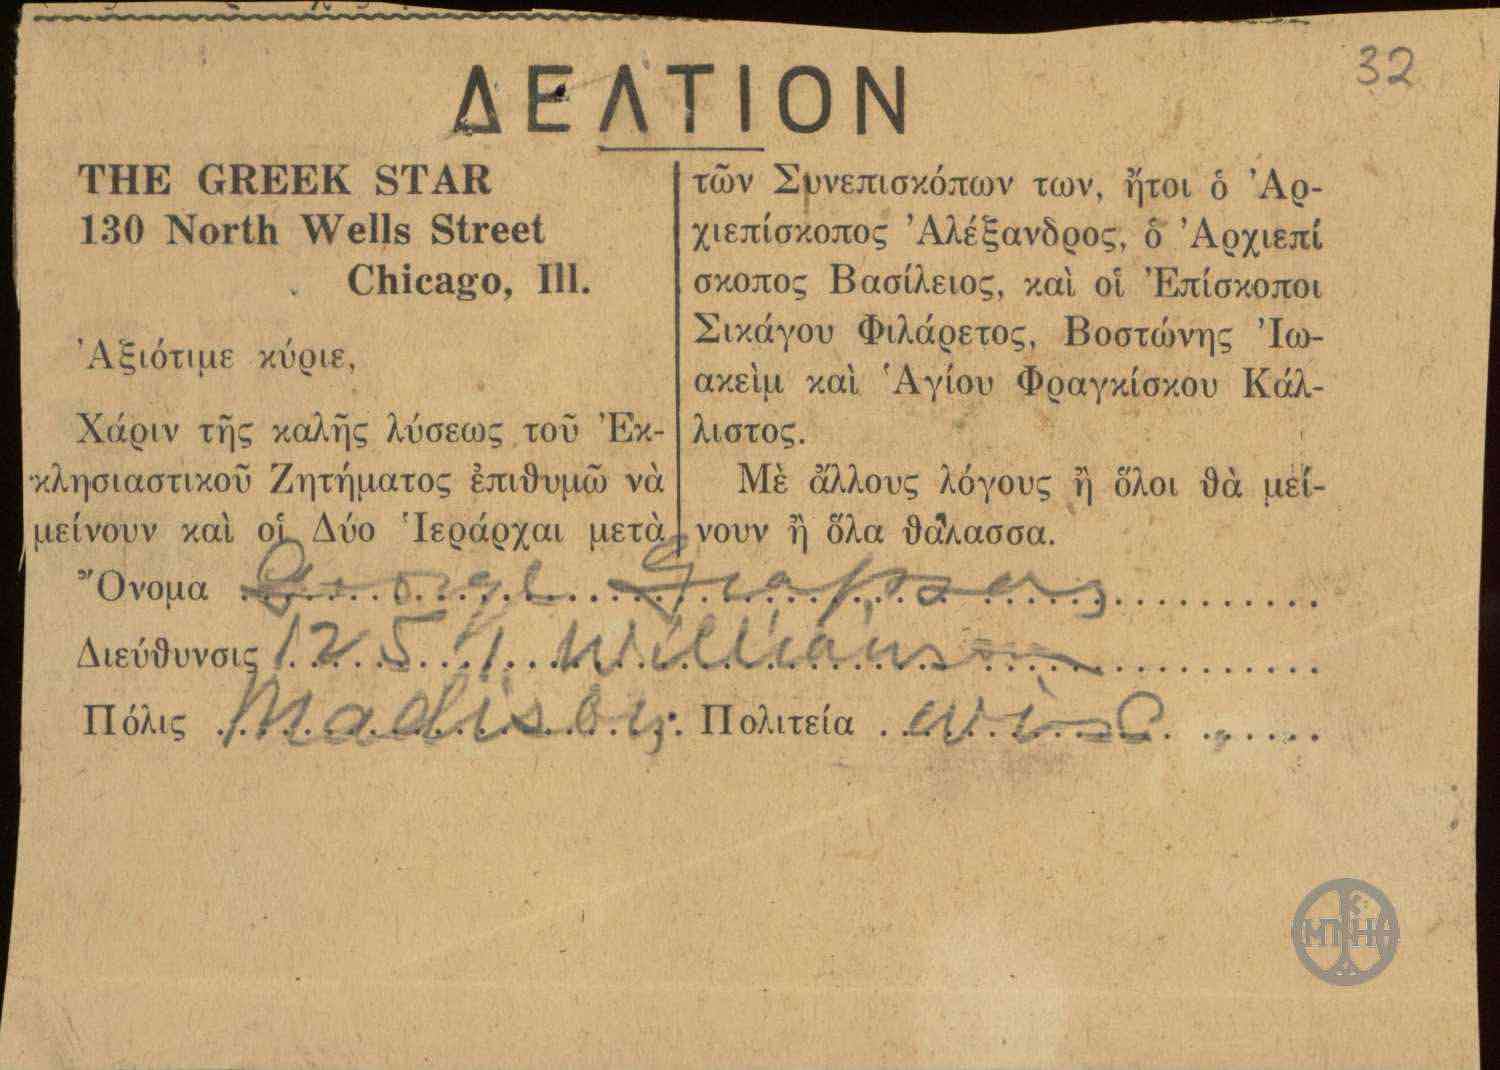 32
ΔΕΛΤΙΟΝ
THE GREEK STAR
130 North Wells Street
Chicago, Ill.
Ἀξιότιμε κύριε,
Χάριν τῆς καλῆς λύσεως τοῦ Ἐκ-
κλησιαστικοῦ Ζητήματος ἐπιθυμῶ νὰ
μείνουν καὶ οἱ Δύο Ἱεράρχαι μετὰ
τῶν Συνεπισκόπων των, ἤτοι ὁ Ἀρ-
χιεπίσκοπος Ἀλέξανδρος, ὁ Ἀρχιεπί
σκοπος Βασίλειος, καὶ οἱ Ἐπίσκοποι
Σικάγου Φιλάρετος, Βοστώνης Ἰω-
ακεὶμ καὶ Ἁγίου Φραγκίσκου Κάλ-
λιστος.
Μὲ ἄλλους λόγους ἢ ὅλοι θὰ μεί-
νουν ἢ ὅλα θάλασσα.
Ὄνομα George
Διεύθυνσις 1251 Williamson
Πόλις Madison Πολιτεία Wisc
ΜΠΗ